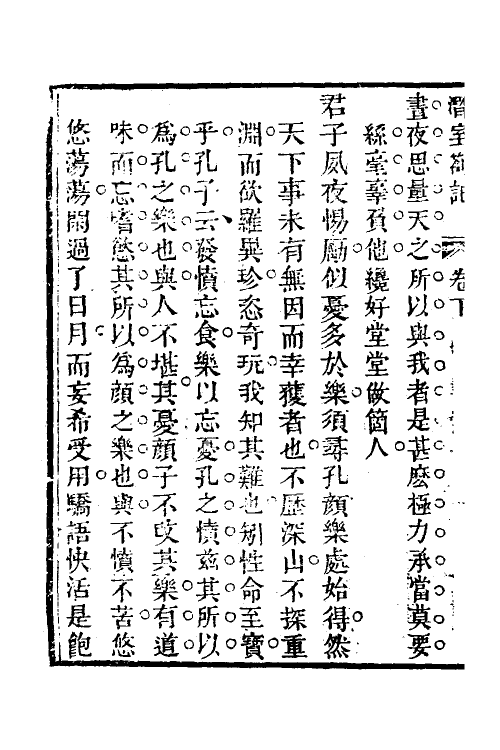 卷下
晝夜思量天之所以與我者是甚麽極力承當莫要
絲毫辜負他纔好堂堂做箇人
君子夙夜惕勵似憂多於樂須尋孔顔樂處始得然
天下事未有無因而幸獲者也不歷深山不探重
淵而欲羅異珍恣奇玩我知其難也矧性命至寶
乎孔子云發憤忘食樂以忘憂孔之憤兹其所以
爲孔之樂也與人不堪其憂顔子不攺其樂有道
味而忘嗜慾其所以爲顔之樂也與不憤不苦悠
悠蕩蕩閒過了日月而妄希受用驕語快活是飽